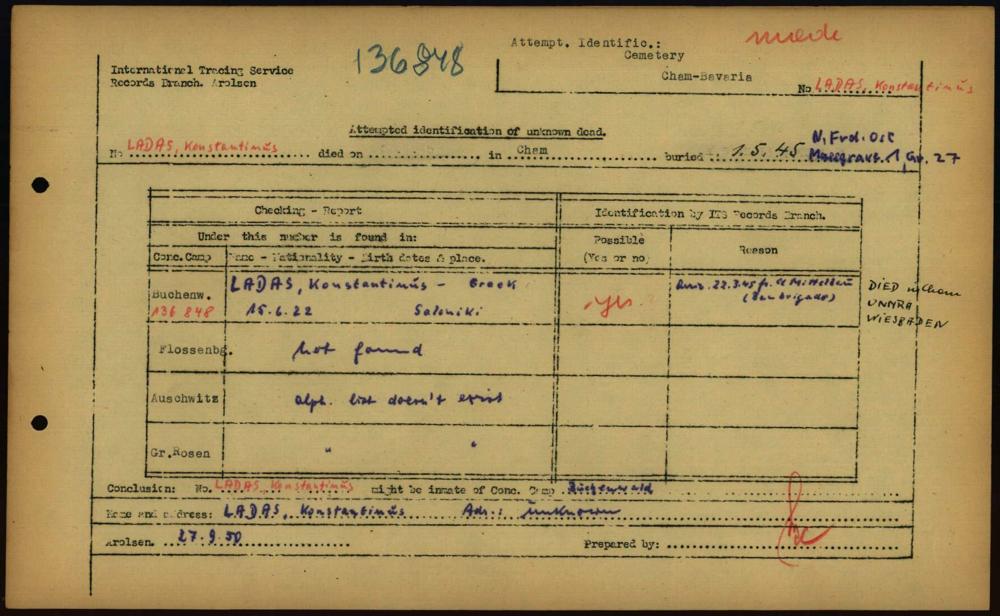 136848
Attempt. Identific.:
Cemetery
Cham-Bavaria
No LADAS, Konstantinüs
International Tracing Service
Records Branch. Arolsen
Attempted identification of unknown dead.
No LADAS, Konstantinüs died on in Cham buried 1.5.45 N, Frd. Ost
1, Gr. 27
Checking - Report
Identification by ITS Records Branch.
Under this number is found in:
Possible
(Yes or no)
Reason
Conc.Camp Name - Nationality - Birth dates & place.
Buchenw. LADAS, Konstantinüs - Greek
136 848 15.6.22 Saloniki
yes
22.3.45 fr. C. Mittelbau
(Baubrigade)
DIED in Cham
UNRRA
WIESBADEN
Flossenbg. not found
Auschwitz alph. list doesn't exist
Gr.Rosen " "
Conclusion: No. LADAS, Konstantinüs might be inmate of Conc. Camp Buchenwald
Name and address: LADAS, Konstantinüs Adr.: Unknown
Arolsen. 27.9.50 Prepared by: